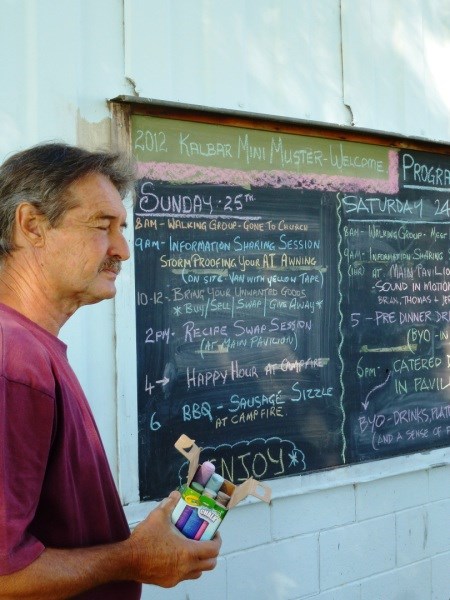 2012 KALBAR MINI MUSTER - WELCOME
PROGRA
SUNDAY - 25TH
8AM - WALKING GROUP - GONE TO CHURCH
9AM - INFORMATION SHARING SESSION
STORM PROOFING YOUR AT AWNING
(ON SITE - VAN WITH YELLOW TAPE)
10-12 - BRING YOUR UNWANTED GOODS
* BUY/SELL/SWAP/GIVE AWAY *
2PM - RECIPE SWAP SESSION
(AT MAIN PAVILION)
4 → HAPPY HOUR AT CAMPFIRE
6 BBQ - SAUSAGE SIZZLE
AT CAMPFIRE.
ENJOY *
SATURDAY 24
8AM - WALKING GROUP - MEET
9AM - INFORMATION SHARING
AT MAIN PAVILIO
SOUND IN MOTION
BRIAN, THOMAS +
5 - PRE DINNER DRI
(BYO - IN
6PM - CATERED D
IN PAVIL
BYO - DRINKS, PLATE
(AND A SENSE OF F
Crayola
CHALK